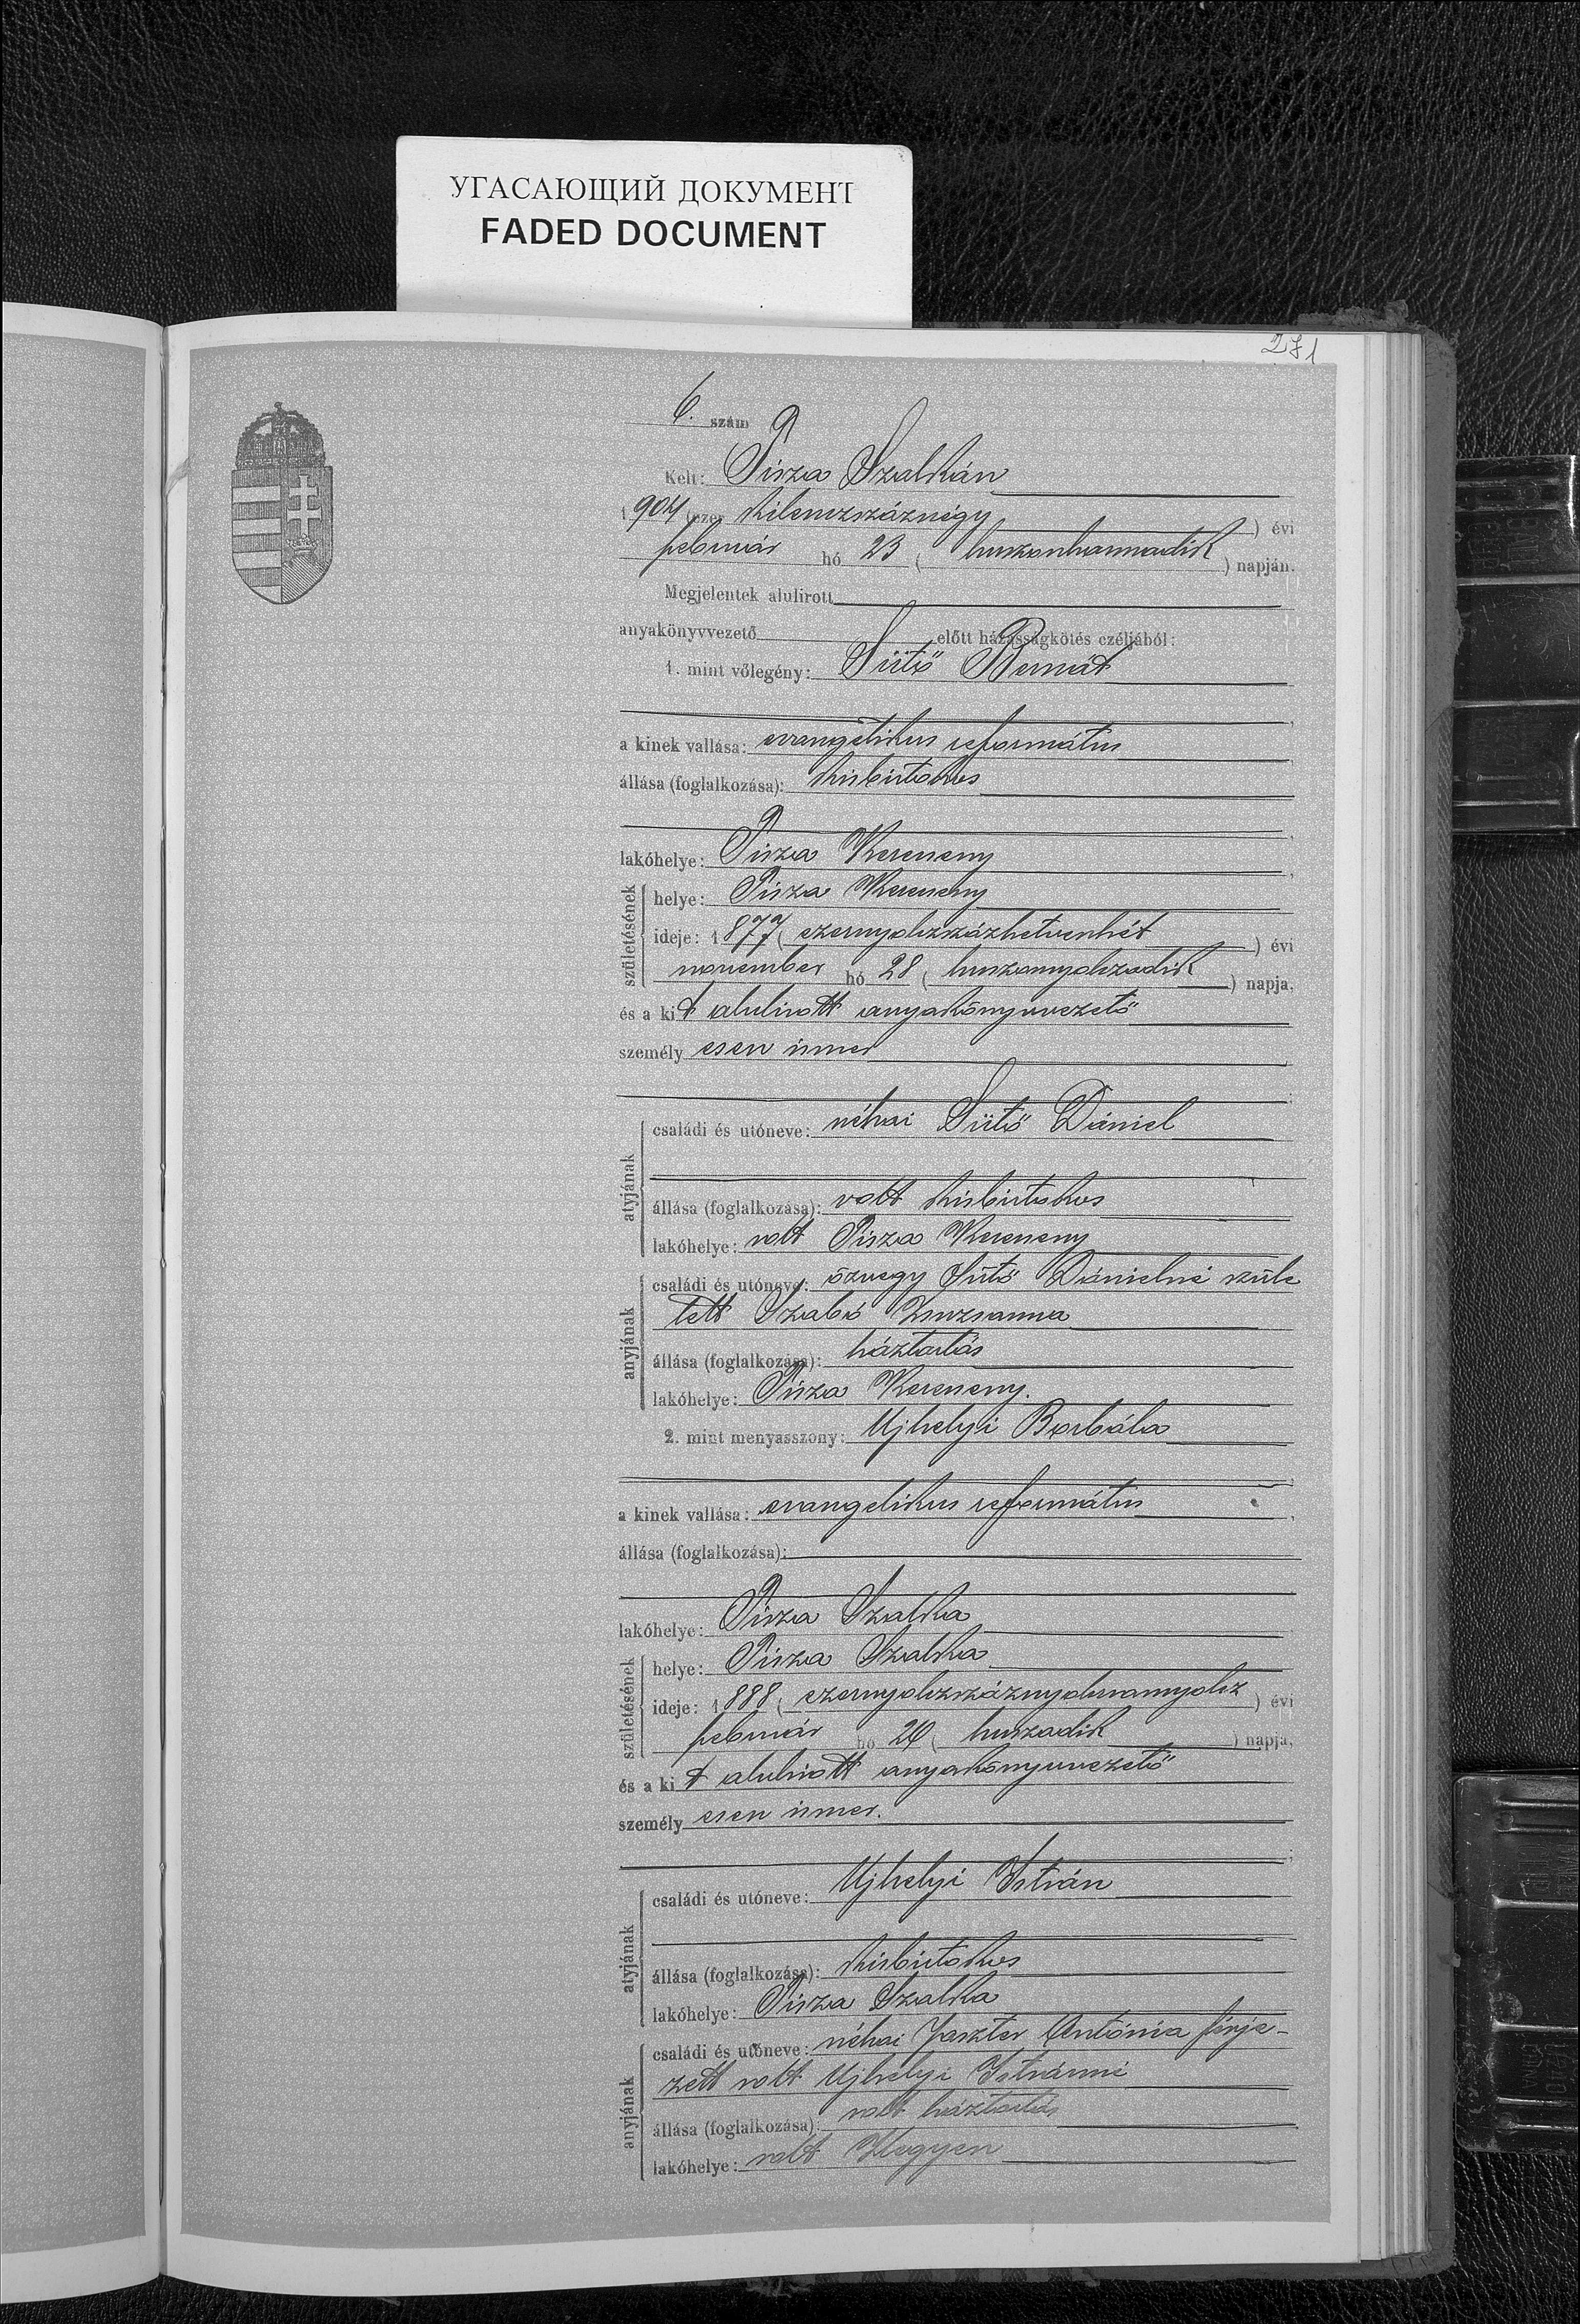 УГАСАЮЩИЙ ДОКУМЕНТ
FADED DOCUMENT
271
6. szám
Kelt: Tisza Szalkán
1904 (ezer kilenczszáznégy) évi
február hó 23 (huszonharmadik) napján.
Megjelentek alulirott
anyakönyvvezető előtt házasságkötés czéljából:
1. mint vőlegény: Sütő Bernát
a kinek vallása: evangélikus református
állása (foglalkozása): kisbirtokos
lakóhelye: Tisza Kerecseny
születésének
helye: Tisza Kerecseny
ideje: 1877 (ezernyolczszázhetvenhét) évi
november hó 28 (huszonnyolczadik) napja,
és a kit alulirott anyakönyvvezető
személyesen ismer
atyjának
családi és utóneve: néhai Sütő Dániel
állása (foglalkozása): volt kisbirtokos
lakóhelye: volt Tisza Kerecseny
anyjának
családi és utóneve: özvegy Sütő Dánielné szüle
tett Szabó Zsuzsanna
állása (foglalkozása): háztartás
lakóhelye: Tisza Kerecseny.
2. mint menyasszony: Ujhelyi Borbála
a kinek vallása: evangelikus református
állása (foglalkozása):
lakóhelye: Tisza Szalka
születésének
helye: Tisza Szalka
ideje: 1888 (ezernyolczszáznyolczvannyolcz) évi
február hó 20 (huszadik) napja,
és a kit alulirott anyakönyvvezető
személyesen ismer.
atyjának
családi és utóneve: Ujhelyi István
állása (foglalkozása): kisbirtokos
lakóhelye: Tisza Szalka
anyjának
családi és utóneve: néhai Jaszter Antónia férje-
zett volt Ujhelyi Istvánné
állása (foglalkozása): volt háztartás
lakóhelye: volt